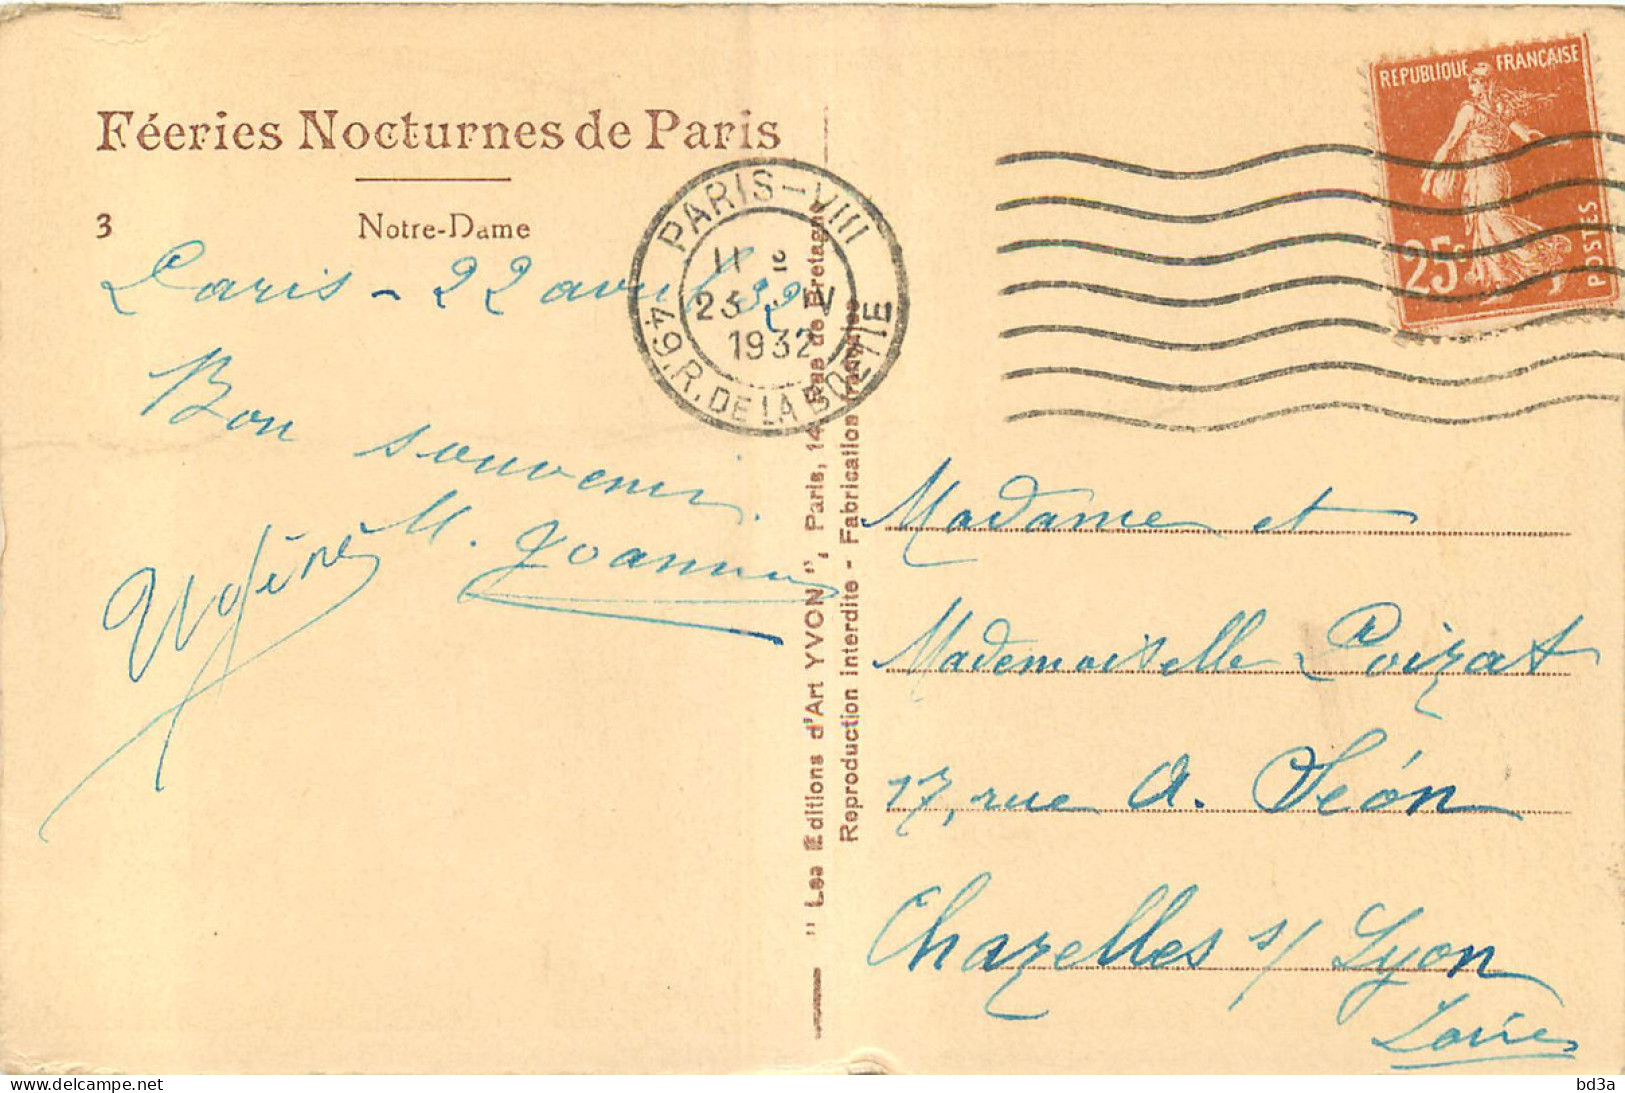 Féeries Nocturnes de Paris
3 Notre-Dame
Paris - 22 avril 32
Bon souvenir.
M. Joannin
PARIS-VIII
11
23 IV
1932
49, R. DE LA BOETIE
"Les Editions d'Art YVON", Paris, 14 Rue de Bretagne
Reproduction interdite - Fabrication française
REPUBLIQUE FRANÇAISE
25c
POSTES
Madame et
Mademoiselle Poizat
17, rue A. Séon
Chazelles s/ Lyon
Loire
delcampe.net
bd3a